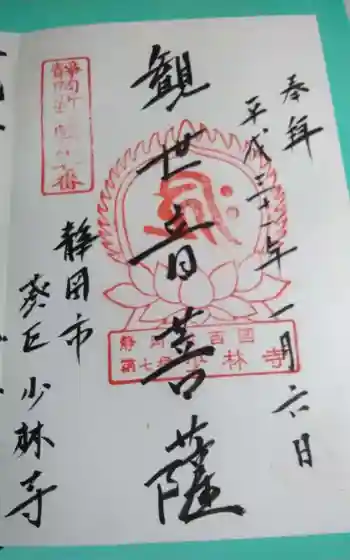 奉拝
平成三十一年一月六日
観世音菩薩
静岡市
葵区少林寺
静岡 百国
第七 林寺
静岡新 番